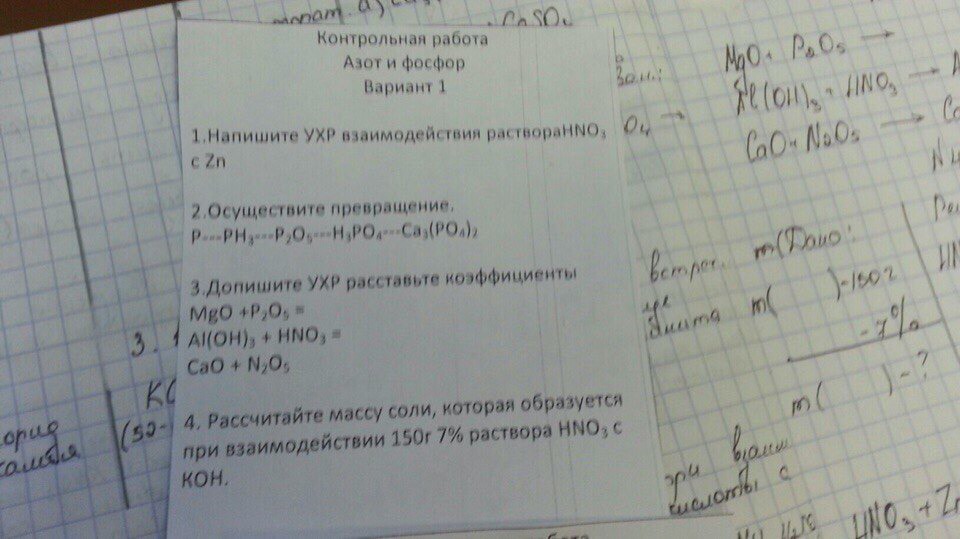 CaSO₄
Контрольная работа
Азот и фосфор
Вариант 1
1.Напишите УХР взаимодействия раствораHNO₃
с Zn
2.Осуществите превращение.
P---PH₃---P₂O₅---H₃PO₄---Ca₃(PO₄)₂
3.Допишите УХР расставьте коэффициенты
MgO +P₂O₅ =
Al(OH)₃ + HNO₃ =
CaO + N₂O₅
4. Рассчитайте массу соли, которая образуется
при взаимодействии 150г 7% раствора HNO₃ с
KOH.
MgO + P₂O₅ →
Al(OH)₃ + HNO₃ →
CaO + N₂O₅ →
O₄ →
m(Дано:
m( )-150г
-7%
m( ) - ?
при взаим
кислоты с
HNO₃ + Zn
3. 1